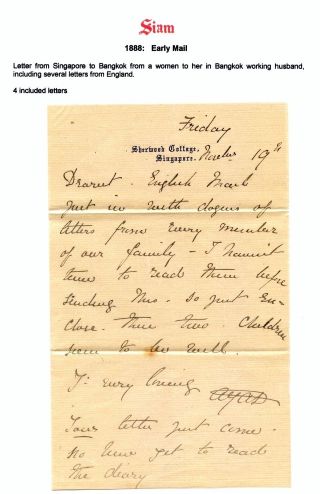 Siam
1888: Early Mail
Letter from Singapore to Bangkok from a women to her in Bangkok working husband,
including several letters from England.
4 included letters
Friday
Sherwood Cottage,
Singapore. 19th
Dearest. English Mail
just in with dozens of
letters from every member
of our family – I haven't
time to read them before
sending this. So just en-
close. these two. Children
seem to be well.
Yr: loving
Your letter just come.
No time yet to read
the diary